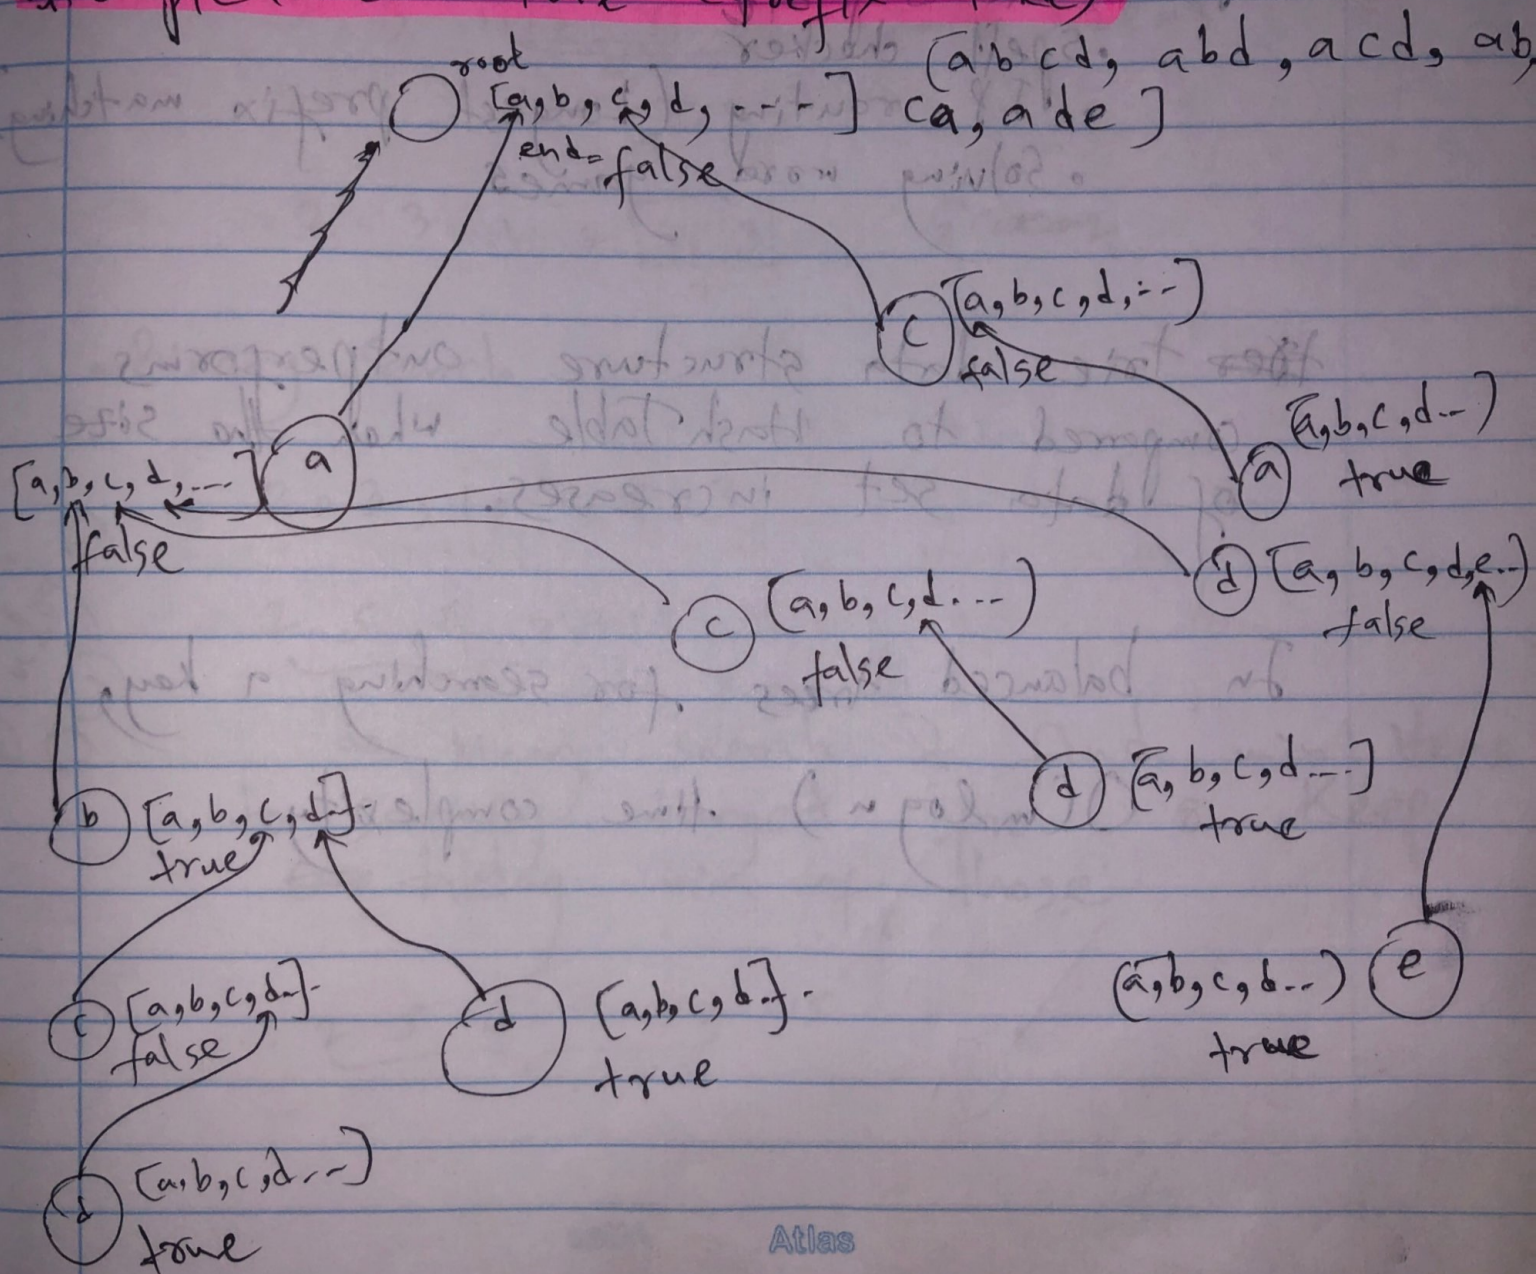 root
[abcd, abd, acd, ab,
[a, b, c, d, ----] ca, ade]
end = false
c [a, b, c, d, --]
false
[a, b, c, d--]
a true
[a, b, c, d, ....] a
false
d [a, b, c, d, e..]
false
c [a, b, c, d. ---]
false
d [a, b, c, d ---]
true
b [a, b, c, d--]
true
c [a, b, c, d--]
false
d [a, b, c, d..]
true
[a, b, c, d...] e
true
d [a, b, c, d...]
true
Atlas